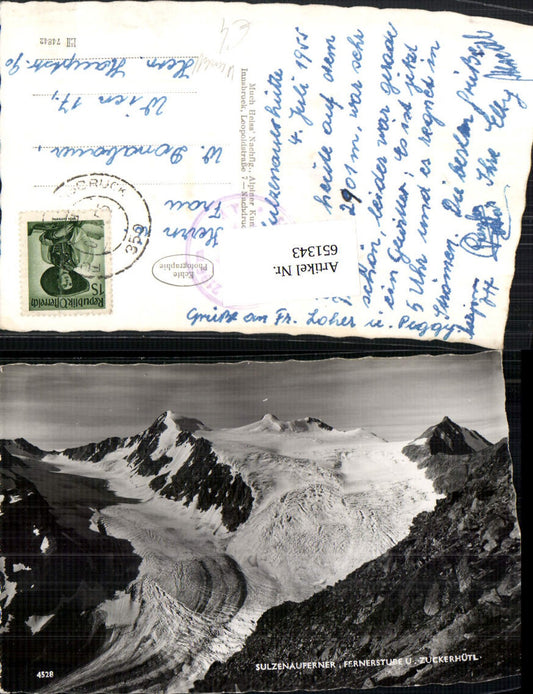 Sulzenauhütte
4. Juli 1955
heute auf dem
2901 m, war sehr
schön, leider war gerade
ein Gewitter. Es ist jetzt
5 Uhr und es regnet in
Strömen. Die besten Grüße
Ihre Elly
Grüße an Fr. Loher u. Peggy
Herrn u.
Frau
W. Donabauer,
Wien 17,
Hern. Hauptstr. 90
Much Heiss' Nachflg., Alpiner Kun
Innsbruck, Leopoldstraße 7 — Nachdruck
Echte
Photographie
74842
SBRUCK
359
Republik Österreich
1S
Artikel Nr.
651343
4528
SULZENAUFERNER, FERNERSTUBE U. ZUCKERHÜTL.